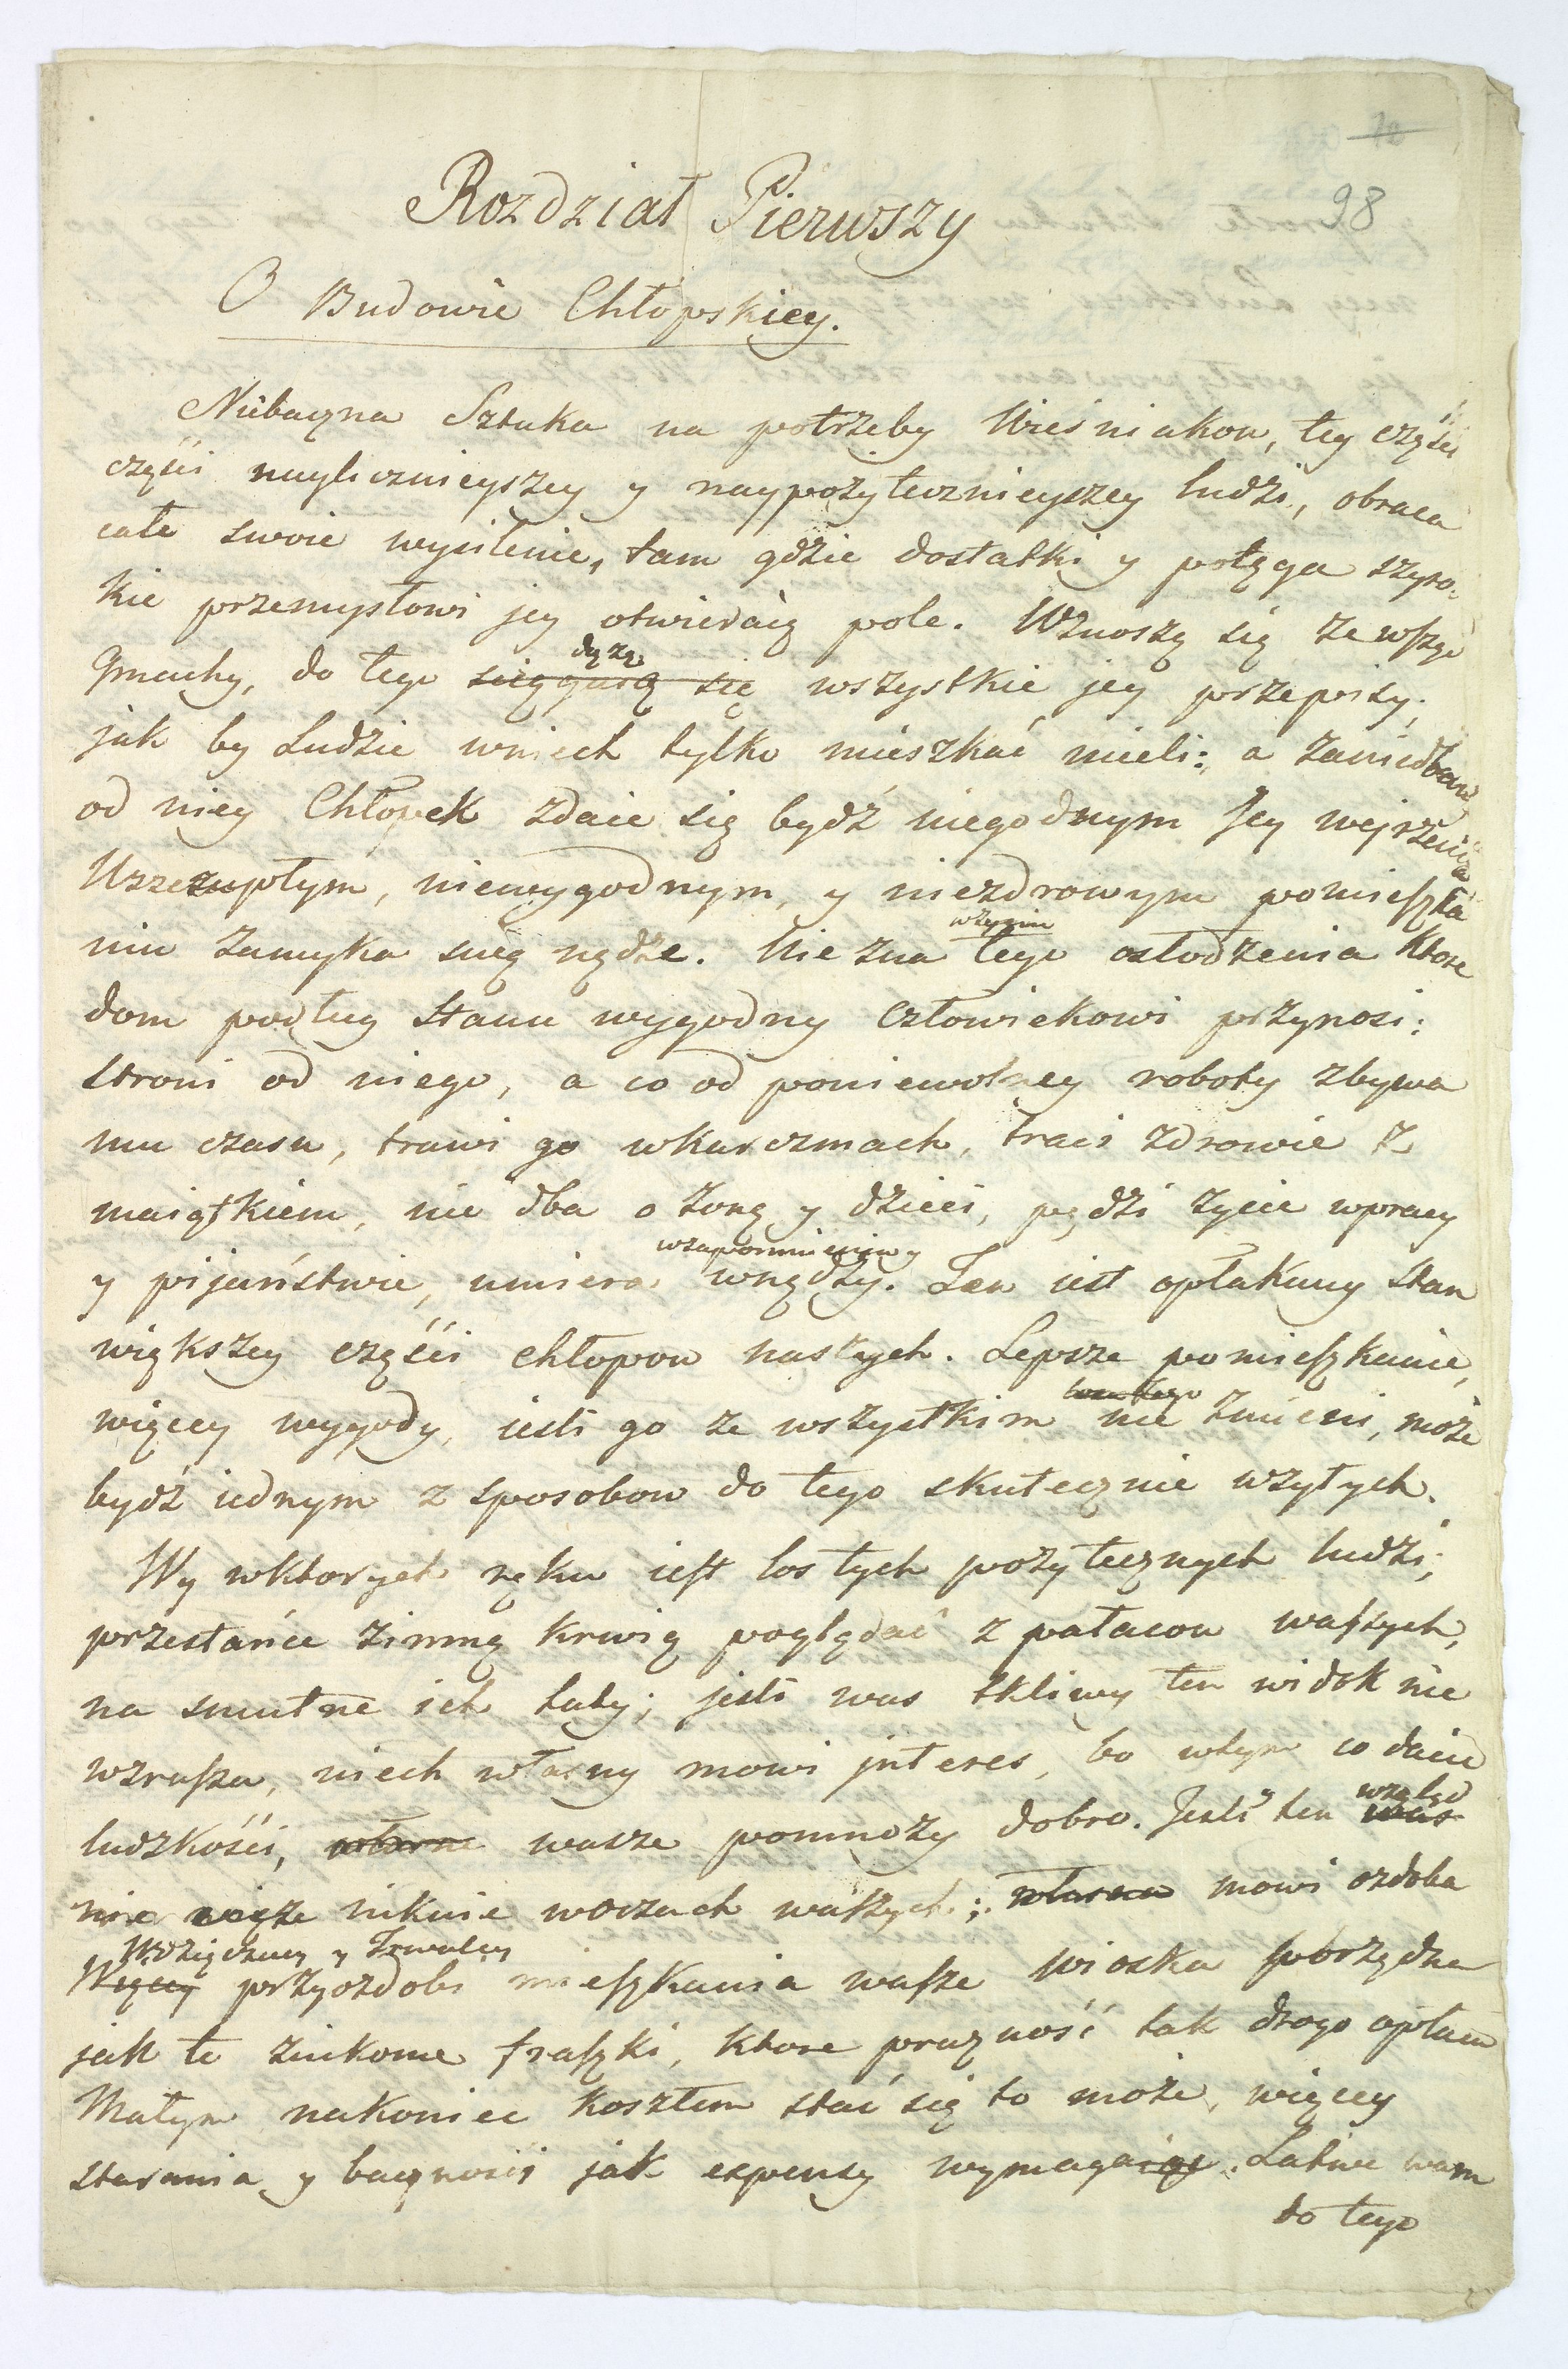 98
Rozdział Pierwszy
O Budowie Chłopskiey.
Niebaczna Sztuka na potrzeby Wieśniakow, tey części
części naylicznieyszey y naypożytecznieyszey ludzi, obraca
całe swoie wysilenie, tam gdzie dostatki y potęga szyro-
kie przemysłowi jey otwieraią pole. Wznoszą się ze wszą
Gmachy, do tego sięgaią się dążą wszystkie jey przepisy;
jak by Ludzie wniech tylko mieszkać mieli; a zaniedban
od niey Chłopek zdaie się bydź niegodnym Jey wejrzenia
Wszczupłym, niewygodnym, y niezdrowym pomieszka
niu zamyka swą nędze. Nie zna w życiu tego osłodzenia ktore
dom podług stanu wygodny człowiekowi przynosi;
stroni od niego, a co od poniewolney roboty zbywa
mu czasu, trawi go wkarczmach, traci zdrowie z
maiątkiem, nie dba o żonę y dzieci, pędzi życie wpracy
y pijaństwie, umiera wzapomnieniu y wnędzy. Ten iest opłakany stan
większey części chłopow naszych. Lepsze pomieszkanie,
więcey wygody, iesli go ze wszystkim nie zmieni, może
bydź iednym z sposobow do tego skutecznie wzytych.
Wy wktorych ręku iest los tych pożytecznych ludzi;
przestańce zimną krwią poglądać z pałacow waszych,
na smutne ich łaty; jesli was tkliwy ten widok nie
wzrusza, niech własny mowi jnteres, bo wtym co dacie
ludzkości, własne wasze pomnoży dobro. Jesli ten was wzgląd
nie niknie woczach waszych; własna mowi ozdoba
Więcey Wdzięczniey y Trwaley przyozdobi mieszkania wasze wioska porządna
jak te znikome fraszki, ktore prozność tak drogo opłaca
Małym nakoniec kosztem stać się to może, więcey
starania y baczności jak expensy wymagaiąc. Łatwe wam
do tego